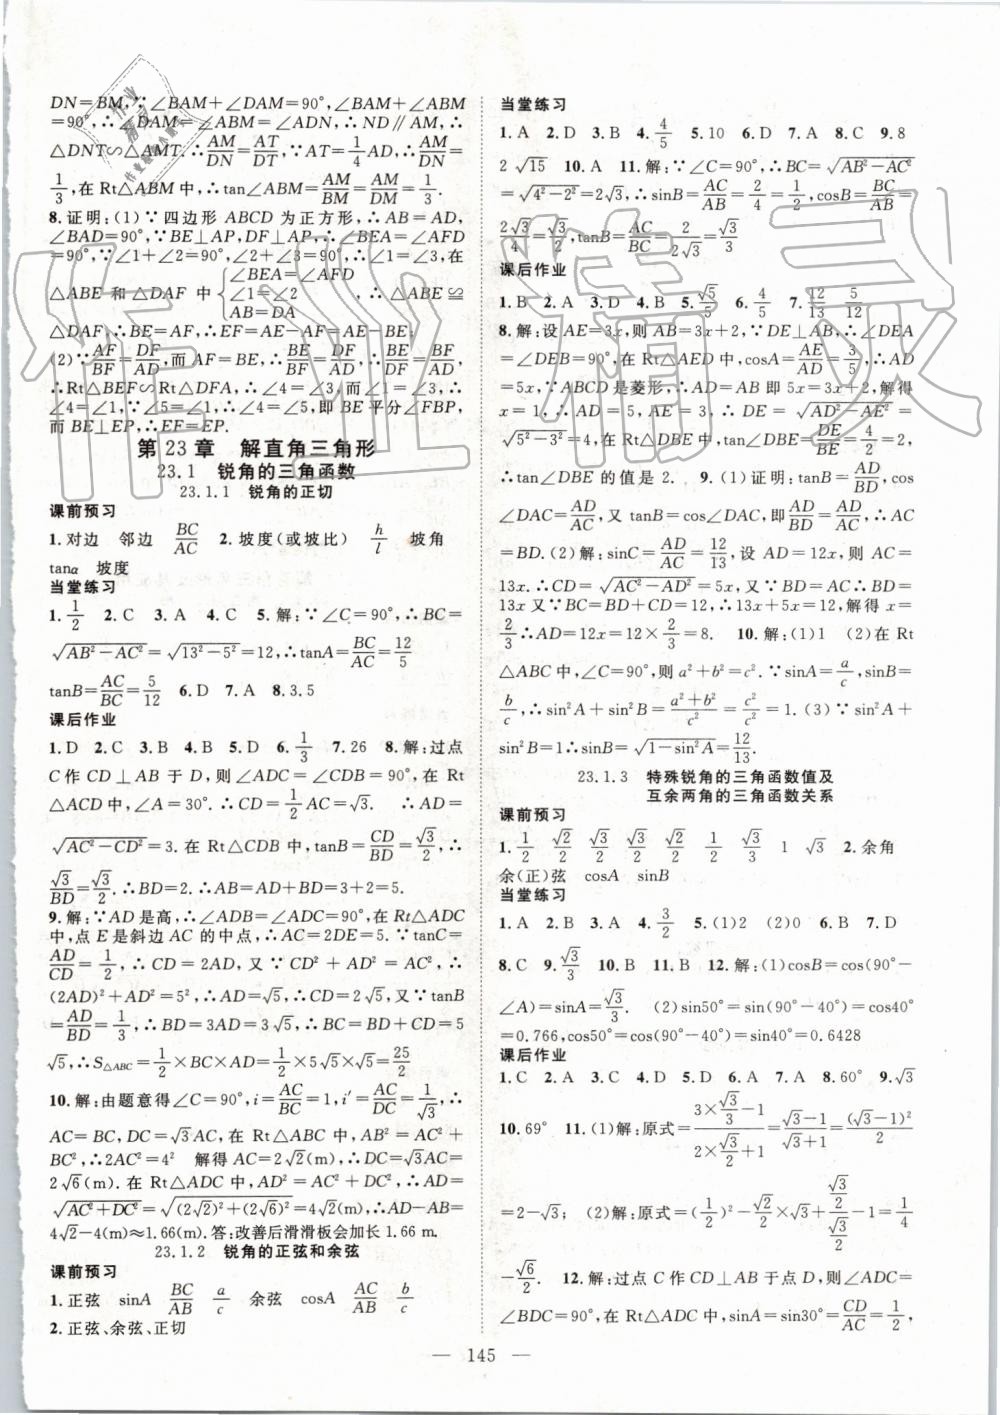 DN=BM,∵∠BAM+∠DAM=90°,∠BAM+∠ABM
=90°,∴∠DAM=∠ABM=∠ADN,∴ND∥AM,∴
△DNT∽△AMT.∴AM/DN=AT/DT,∵AT=1/4AD,∴AM/DN=
1/3,在Rt△ABM中,∴tan∠ABM=AM/BM=AM/DM=1/3.
8.证明:(1)∵四边形ABCD为正方形,∴AB=AD,
∠BAD=90°,∵BE⊥AP,DF⊥AP,∴∠BEA=∠AFD
=90°,∵∠1+∠2=90°,∠2+∠3=90°,∴∠1=∠3,在
△ABE和△DAF中 {∠BEA=∠AFD ∠1=∠2 AB=DA ,∴△ABE≌
△DAF,∴BE=AF,∴EF=AE-AF=AE-BE;
(2)∵AF/BF=DF/AD,而AF=BE,∴BE/BF=DF/AD,∴BE/DF=BF/AD,
∴Rt△BEF∽Rt△DFA,∴∠4=∠3,而∠1=∠3,∴
∠4=∠1,∵∠5=∠1,∴∠4=∠5,即BE平分∠FBP,
而BE⊥EP,∴EF=EP.
第23章 解直角三角形
23.1 锐角的三角函数
23.1.1 锐角的正切
课前预习
1.对边 邻边 BC/AC 2.坡度(或坡比) h/l 坡角
tanα 坡度
当堂练习
1.1/2 2.C 3.A 4.C 5.解:∵∠C=90°,∴BC=
√(AB²-AC²)=√(13²-5²)=12,∴tanA=BC/AC=12/5
tanB=AC/BC=5/12 6.D 7.A 8.3.5
课后作业
1.D 2.C 3.B 4.B 5.D 6.1/3 7.26 8.解:过点
C作CD⊥AB于D,则∠ADC=∠BDC=90°.在Rt
△ACD中,∠A=30°.∴CD=1/2AC=√3,∴AD=
√(AC²-CD²)=3.在Rt△CBD中,tanB=CD/BD=√3/2,∴
√3/BD=√3/2.∴BD=2.∴AB=AD+BD=3+2=5.
9.解:∵AD是高,∴∠ADB=∠ADC=90°,在Rt△ADC
中,点E是斜边AC的中点,∴AC=2DE=5.∵tanC=
AD/CD=1/2,∴CD=2AD,又∵CD²+AD²=AC²,∴
(2AD)²+AD²=5²,∴AD=√5,∴CD=2√5,又∵tanB
=AD/BD=1/3,∴BD=3AD=3√5,∴BC=BD+CD=5
√5,∴S△ABC=1/2×BC×AD=1/2×5√5×√5=25/2
10.解:由题意得∠C=90°,i=AC/BC=1,i′=AC/DC=1/√3,∴
AC=BC,DC=√3AC,在Rt△ABC中,AB²=AC²+
BC²,∴2AC²=4² 解得AC=2√2(m),∴DC=√3AC=
2√6(m).在Rt△ADC中,AD²=AC²+DC²,∴AD=
√(AC²+DC²)=√((2√2)²+(2√6)²)=4√2(m),∴AD-AB=
4√2-4(m)≈1.66(m).答:改善后滑滑板会加长1.66 m.
23.1.2 锐角的正弦和余弦
课前预习
1.正弦 sinA BC/AB a/c 余弦 cosA AC/AB b/c
2.正弦、余弦、正切
当堂练习
1.A 2.D 3.B 4.4/5 5.10 6.D 7.A 8.C 9.8
2√15 10.A 11.解:∵∠C=90°,∴BC=√(AB²-AC²)
=√(4²-2²)=2√3,∴sinB=AC/AB=2/4=1/2,cosB=BC/AB=
2√3/4=√3/2,tanB=AC/BC=2/2√3=√3/3
课后作业
1.B 2.A 3.A 4.B 5.√5/5 6.4/5 7.12/13 5/12
8.解:设AE=3x,则AB=3x+2,∵DE⊥AB,∴∠DEA
=∠DEB=90°,在Rt△AED中,cosA=AE/AD=3/5,∴AD
=5x,∵ABCD是菱形,∴AD=AB即5x=3x+2,解得
x=1,∴AD=5,AE=3,∴DE=√(AD²-AE²)=
√(5²-3²)=4,在Rt△DBE中,tan∠DBE=DE/BE=4/2=2,
∴tan∠DBE的值是2. 9.(1)证明:tanB=AD/BD,cos
∠DAC=AD/AC,又tanB=cos∠DAC,即AD/BD=AD/AC,∴AC
=BD.(2)解:sinC=AD/AC=12/13,设AD=12x,则AC=
13x.∴CD=√(AC²-AD²)=5x.又∵AC=BD∴BD=
13x又∵BC=BD+CD=12,∴13x+5x=12,解得x=
2/3∴AD=12x=12×2/3=8. 10.解:(1)1 (2)在Rt
△ABC中,∠C=90°,则a²+b²=c².∵sinA=a/c,sinB=
b/c,∴sin²A+sin²B=a²/c²+b²/c²=(a²+b²)/c²=c²/c²=1.(3)∵sin²A+
sin²B=1∴sinB=√(1-sin²A)=12/13.
23.1.3 特殊锐角的三角函数值及
互余两角的三角函数关系
课前预习
1.1/2 √2/2 √3/2 √3/2 √2/2 1/2 √3/3 1 √3 2.余角
余(正)弦 cosA sinB
当堂练习
1.A 2.B 3.A 4.3/2 5.(1)2 (2)0 6.B 7.D
8.C 9.√3/3 10.B 11.B 12.解:(1)cosB=cos(90°-
∠A)=sinA=√3/3. (2)sin50°=sin(90°-40°)=cos40°
=0.766,cos50°=cos(90°-40°)=sin40°=0.6428
课后作业
1.C 2.A 3.C 4.D 5.D 6.A 7.A 8.60° 9.√3
10.69° 11.(1)解:原式=(3×√3/3-1)/(2×√3/2+1)=(√3-1)/(√3+1)=(√3-1)²/2
=2-√3; (2)解:原式=(1/2)²-√2/2×√3+(1/2)/(√3/2)×(√3/2)=1-
-√6/2. 12.解:过点C作CD⊥AB于点D,则∠ADC=
∠BDC=90°,∵在Rt△ADC中,∴sin30°=CD/AC=1/2,
145